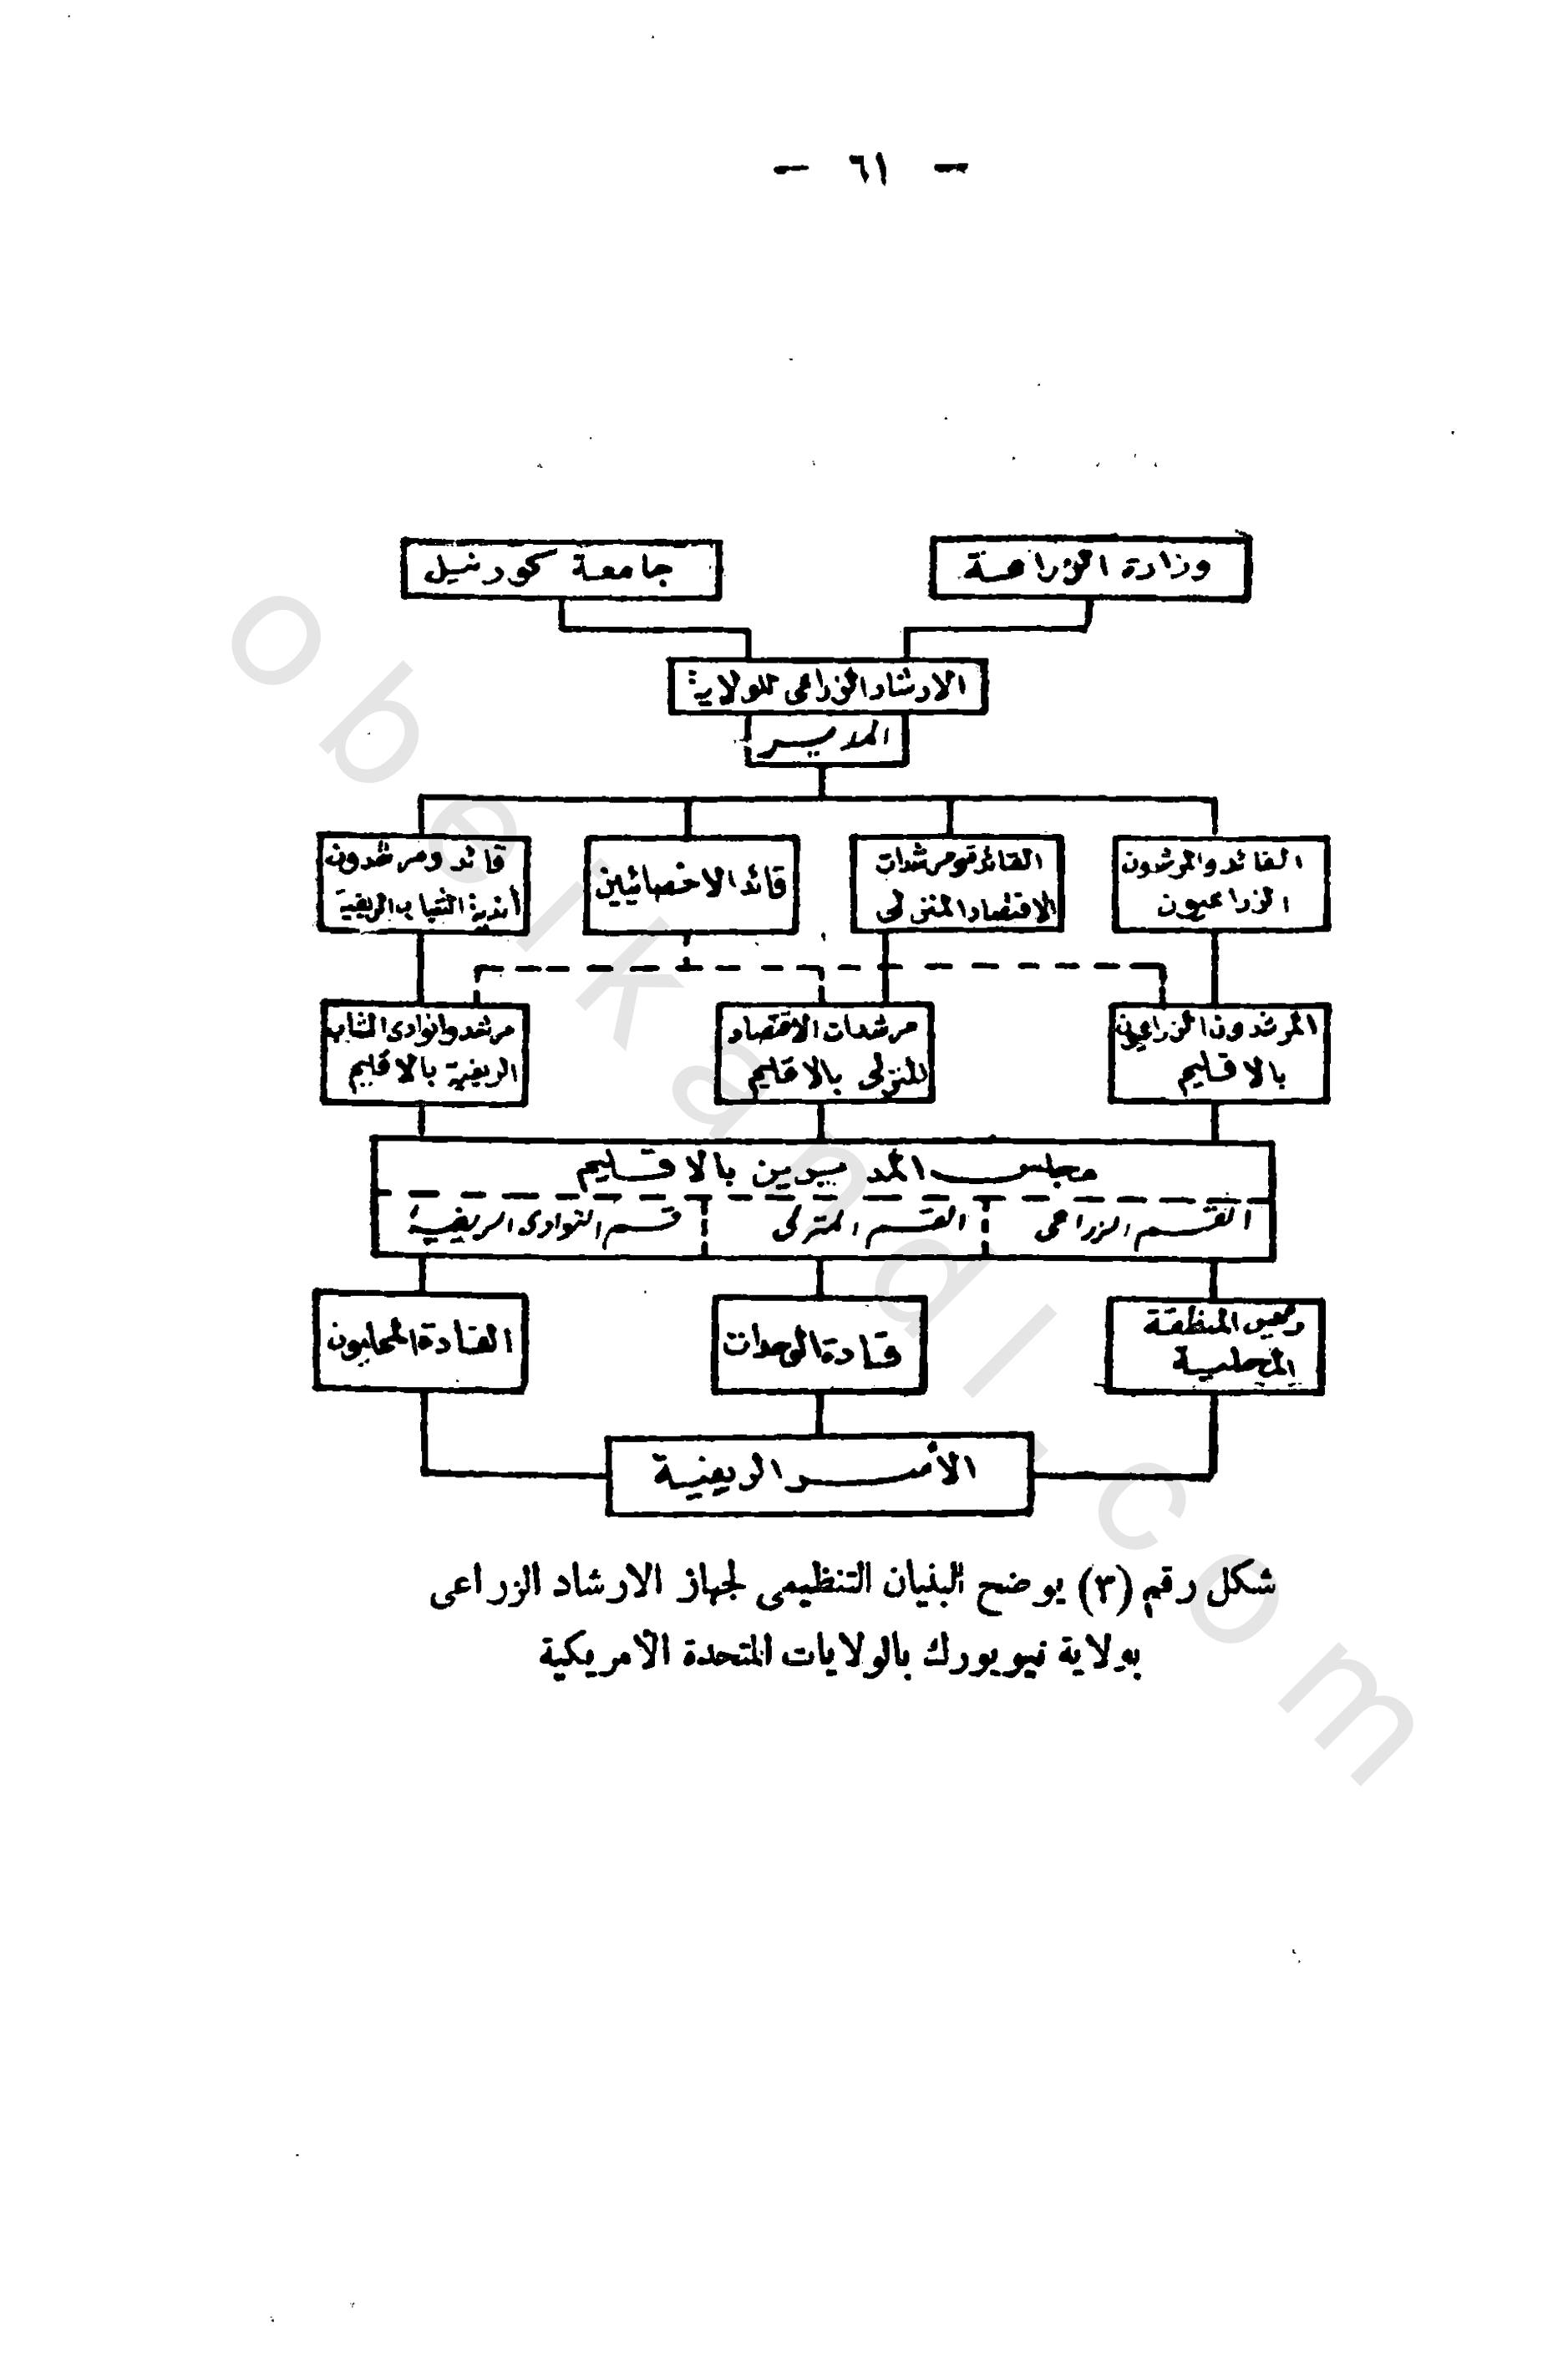 — ٦١ —
وزارة الزراعة
جامعة كورنيل
الارشاد الزراعى للولاية
المدير
القائد والمرشدون
الزراعيون
القائدة ومرشدات
الاقتصاد المنزلى
قائد الاخصائيين
قائد ومرشدون
أندية الشباب الريفية
المرشدون الزراعيين
بالاقليم
مرشدات الاقتصاد
المنزلى بالاقليم
مرشدوا نوادى الشباب
الريفية بالاقليم
مجلس المديرين بالاقليم
القسم الزراعى
القسم المنزلى
قسم النوادى الريفية
المنطقة
المحلية
قادة الوحدات
القادة المحليون
الأسر الريفية
شكل رقم (٣) يوضح البنيان التنظيمى لجهاز الارشاد الزراعى
بولاية نيويورك بالولايات المتحدة الأمريكية
obeikandl.com